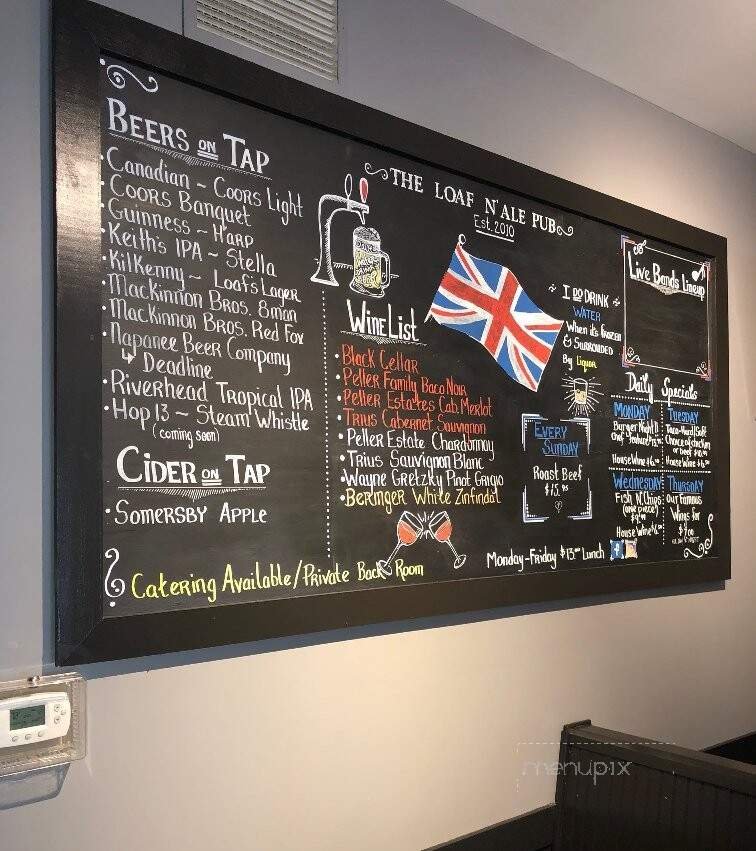 Beers on Tap
Canadian ~ Coors Light
Coors Banquet
Guinness ~ Harp
Keith's IPA ~ Stella
Kilkenny ~ Loafs Lager
MacKinnon Bros. 8man
MacKinnon Bros. Red Fox
Napanee Beer Company
Deadline
Riverhead Tropical IPA
Hop 13 ~ Steam Whistle
(coming soon)
Cider on Tap
Somersby Apple
Catering Available/Private Back Room
The Loaf N' Ale Pub
Est. 2010
Wine List
Black Cellar
Peller Family Baco Noir
Peller Estates Cab. Merlot
Trius Cabernet Sauvignon
Peller Estate Chardonnay
Trius Sauvignon Blanc
Wayne Gretzky Pinot Grigio
Beringer White Zinfindal
I Do Drink
Water
When it's frozen
& Surrounded
By Liquor
Every
Sunday
Roast Beef
$15.95
Monday-Friday $13.00 Lunch
Live Bands Lineup
Daily Specials
Monday
Burger Night
Chef "Feature"
House Wine $6.00
Tuesday
Taco-Hard/Soft
Choice of chicken
or beef
House Wine $6.00
Wednesday
Fish N' Chips
(one piece)
House Wine $6.00
Thursday
Our Famous
Wings for
menupix